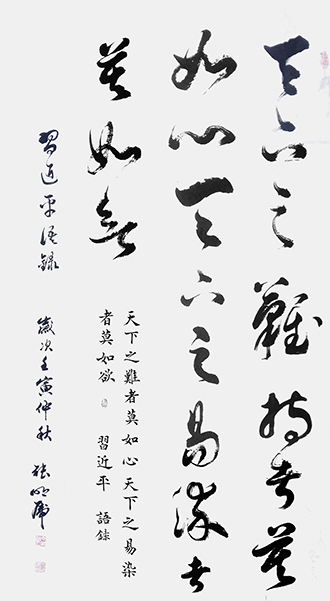 天下之難持者莫
如心天下之易染者
莫如欲
天下之難者莫如心天下之易染
者莫如欲 習近平 語錄
習近平語錄 歲次壬寅仲秋 張